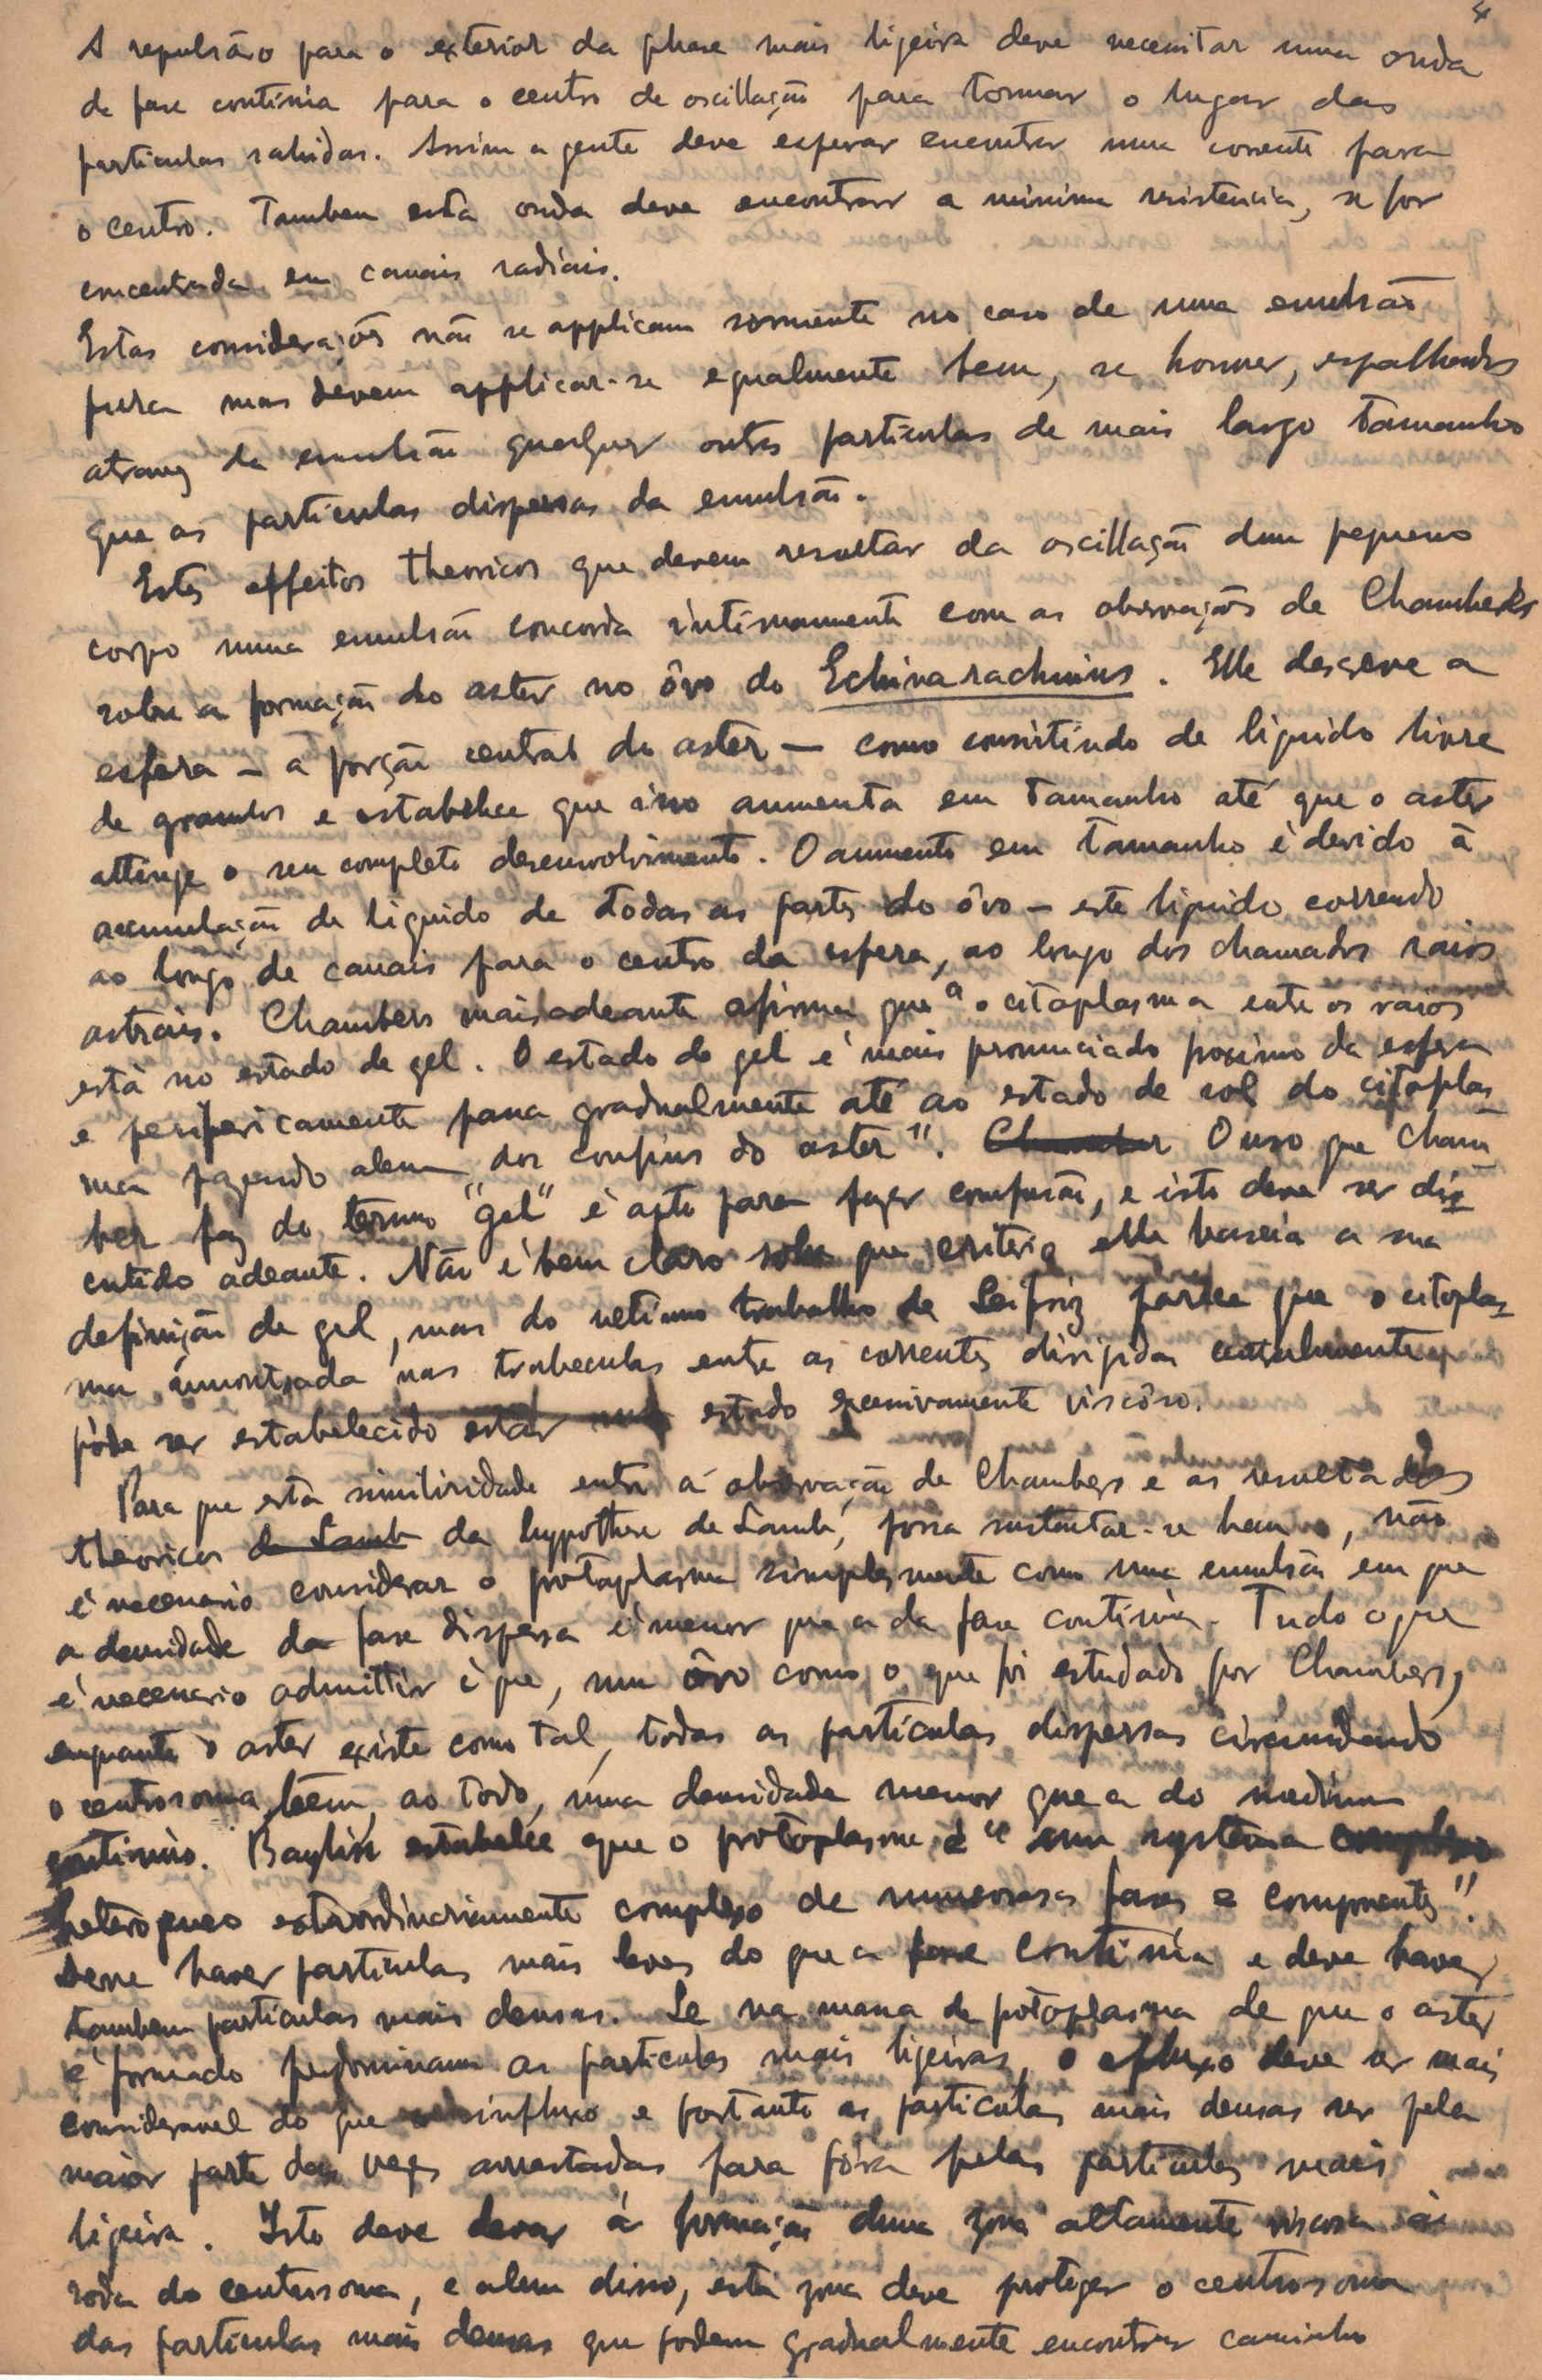 4
A repulsão para o exterior da phase mais ligeira deve necessitar numa onda
da fase contínia para o centro de oscillação para tommar o lugar das
particulas sahidas. Assim a gente deve esperar encontrar uma corrente para
o centro. Tambem esta onda deve encontrar a minima resistencia, se for
concentrada em canais radiais.
Estas considerações não se applicam somente no caso de uma emulsão
pura mas devem applicar-se egualmente bem, se houver, espalhados
atravez da emulsão quaesquer outras particulas de mais largo tamanho
que as particulas dispersas da emulsão.
Estes effeitos theoricos que devem resultar da oscillação dum pequeno
corpo numa emulsão concorda intimamente com as observações de Chambers
sobre a formação do aster no ôvo do Echinarachnius. Elle descreve a
esfera – a porção central do aster – como consistindo de liquido livre
de granulos e estabelece que isso aumenta em tamanho até que o aster
attinge o seu completo desenvolvimento. O aumento em tamanho é devido à
accumulação de liquido de todas as partes do ôvo – este liquido correndo
ao longo de canais para o centro da esfera, ao longo dos chamados raios
astrais. Chambers mais adeante afirma que "o citoplasma entre os raios
está no estado de gel. O estado de gel é mais pronunciado proximo da esfera
e perifericamente passa gradualmente até ao estado de sol do citoplas-
ma fazendo alem dos confins do aster". O uso que Cham-
ber faz do termo "gel" é apto para fazer confusão, e isto deve ser dis-
cutido adeante. Não é bem claro sobre que criterio elle baseia a sua
definição de gel, mas do ultimo trabalho de Seifriz parece que o citoplas-
ma amontoada nas trabeculas entre as correntes dirigidas centralmente
póde ser estabelecido estar num estado excessivamente viscôso.
Para que esta similiridade entre a observação de Chambers e os resultados
theoricos da hypothese de Lamb, possa sustentar-se bem, não
é necessario considerar o protoplasma simplesmente como uma emulsão em que
a densidade da fase dispersa é menor que a da fase contínia. Tudo o que
é necessario admittir é que, num ôvo como o que foi estudado por Chambers,
enquanto o aster existe como tal, todas as particulas dispersas circundando
o centrosoma, teem, ao todo, uma densidade menor que a do medium
contínuo. Bayliss estabelece que o protoplasma é "um systema
heterogeneo extraordinariamente complexo de numerosas fases e componentes".
Deve haver particulas mais leves do que a fase contínia e deve haver
tambem particulas mais densas. Se na massa de protoplasma de que o aster
é formado predominam as particulas mais ligeiras, o efluxo deve ser mais
consideravel do que o influxo e portanto as particulas mais densas ser pela
maior parte das vezes arrastadas para fóra pelas particulas mais
ligeira. Isto deve levar á formação duma zona altamente viscosa á
roda do centrosoma, e alem disso, esta zona deve proteger o centrosoma
das particulas mais densas que podem gradualmente encontrar caminho